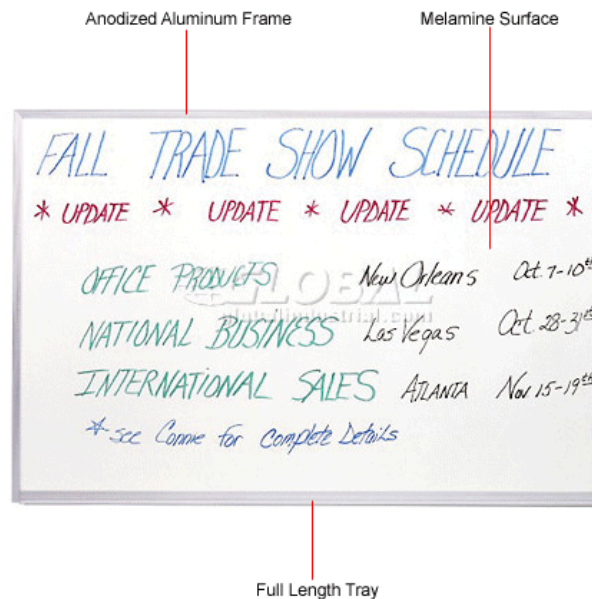 Anodized Aluminum Frame Melamine Surface
FALL TRADE SHOW SCHEDULE
* UPDATE * UPDATE * UPDATE * UPDATE *
OFFICE PRODUCTS New Orleans Oct. 7-10th
GLOBAL
globalindustrial.com
NATIONAL BUSINESS Las Vegas Oct. 28-31st
INTERNATIONAL SALES ATLANTA Nov 15-19th
*see Connie for Complete Details
Full Length Tray